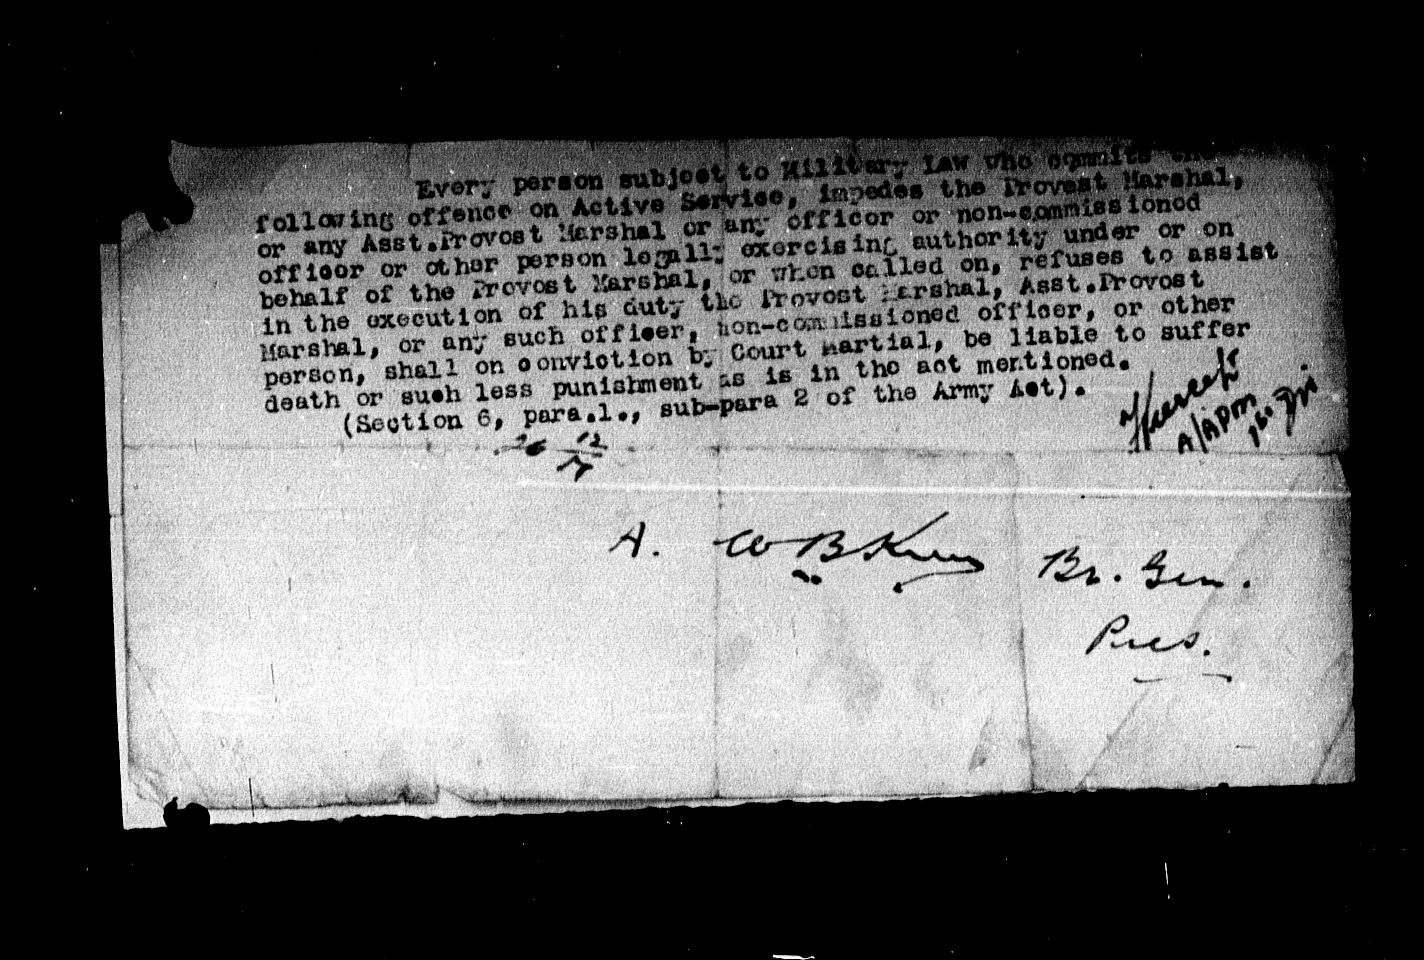 Every person subject to Military Law who commits the
following offence on Active Service, impedes the Provost Marshal,
or any Asst.Provost Marshal or any officer or non-commissioned
officer or other person legally exercising authority under or on
behalf of the Provost Marshal, or when called on, refuses to assist
in the execution of his duty the Provost Marshal, Asst.Provost
Marshal, or any such officer, non-commissioned officer, or other
person, shall on conviction by Court Martial, be liable to suffer
death or such less punishment as is in the act mentioned.
(Section 6, para.1., sub-para 2 of the Army Act).
A/APM
26 12
A. Br. Gen.
Pres.